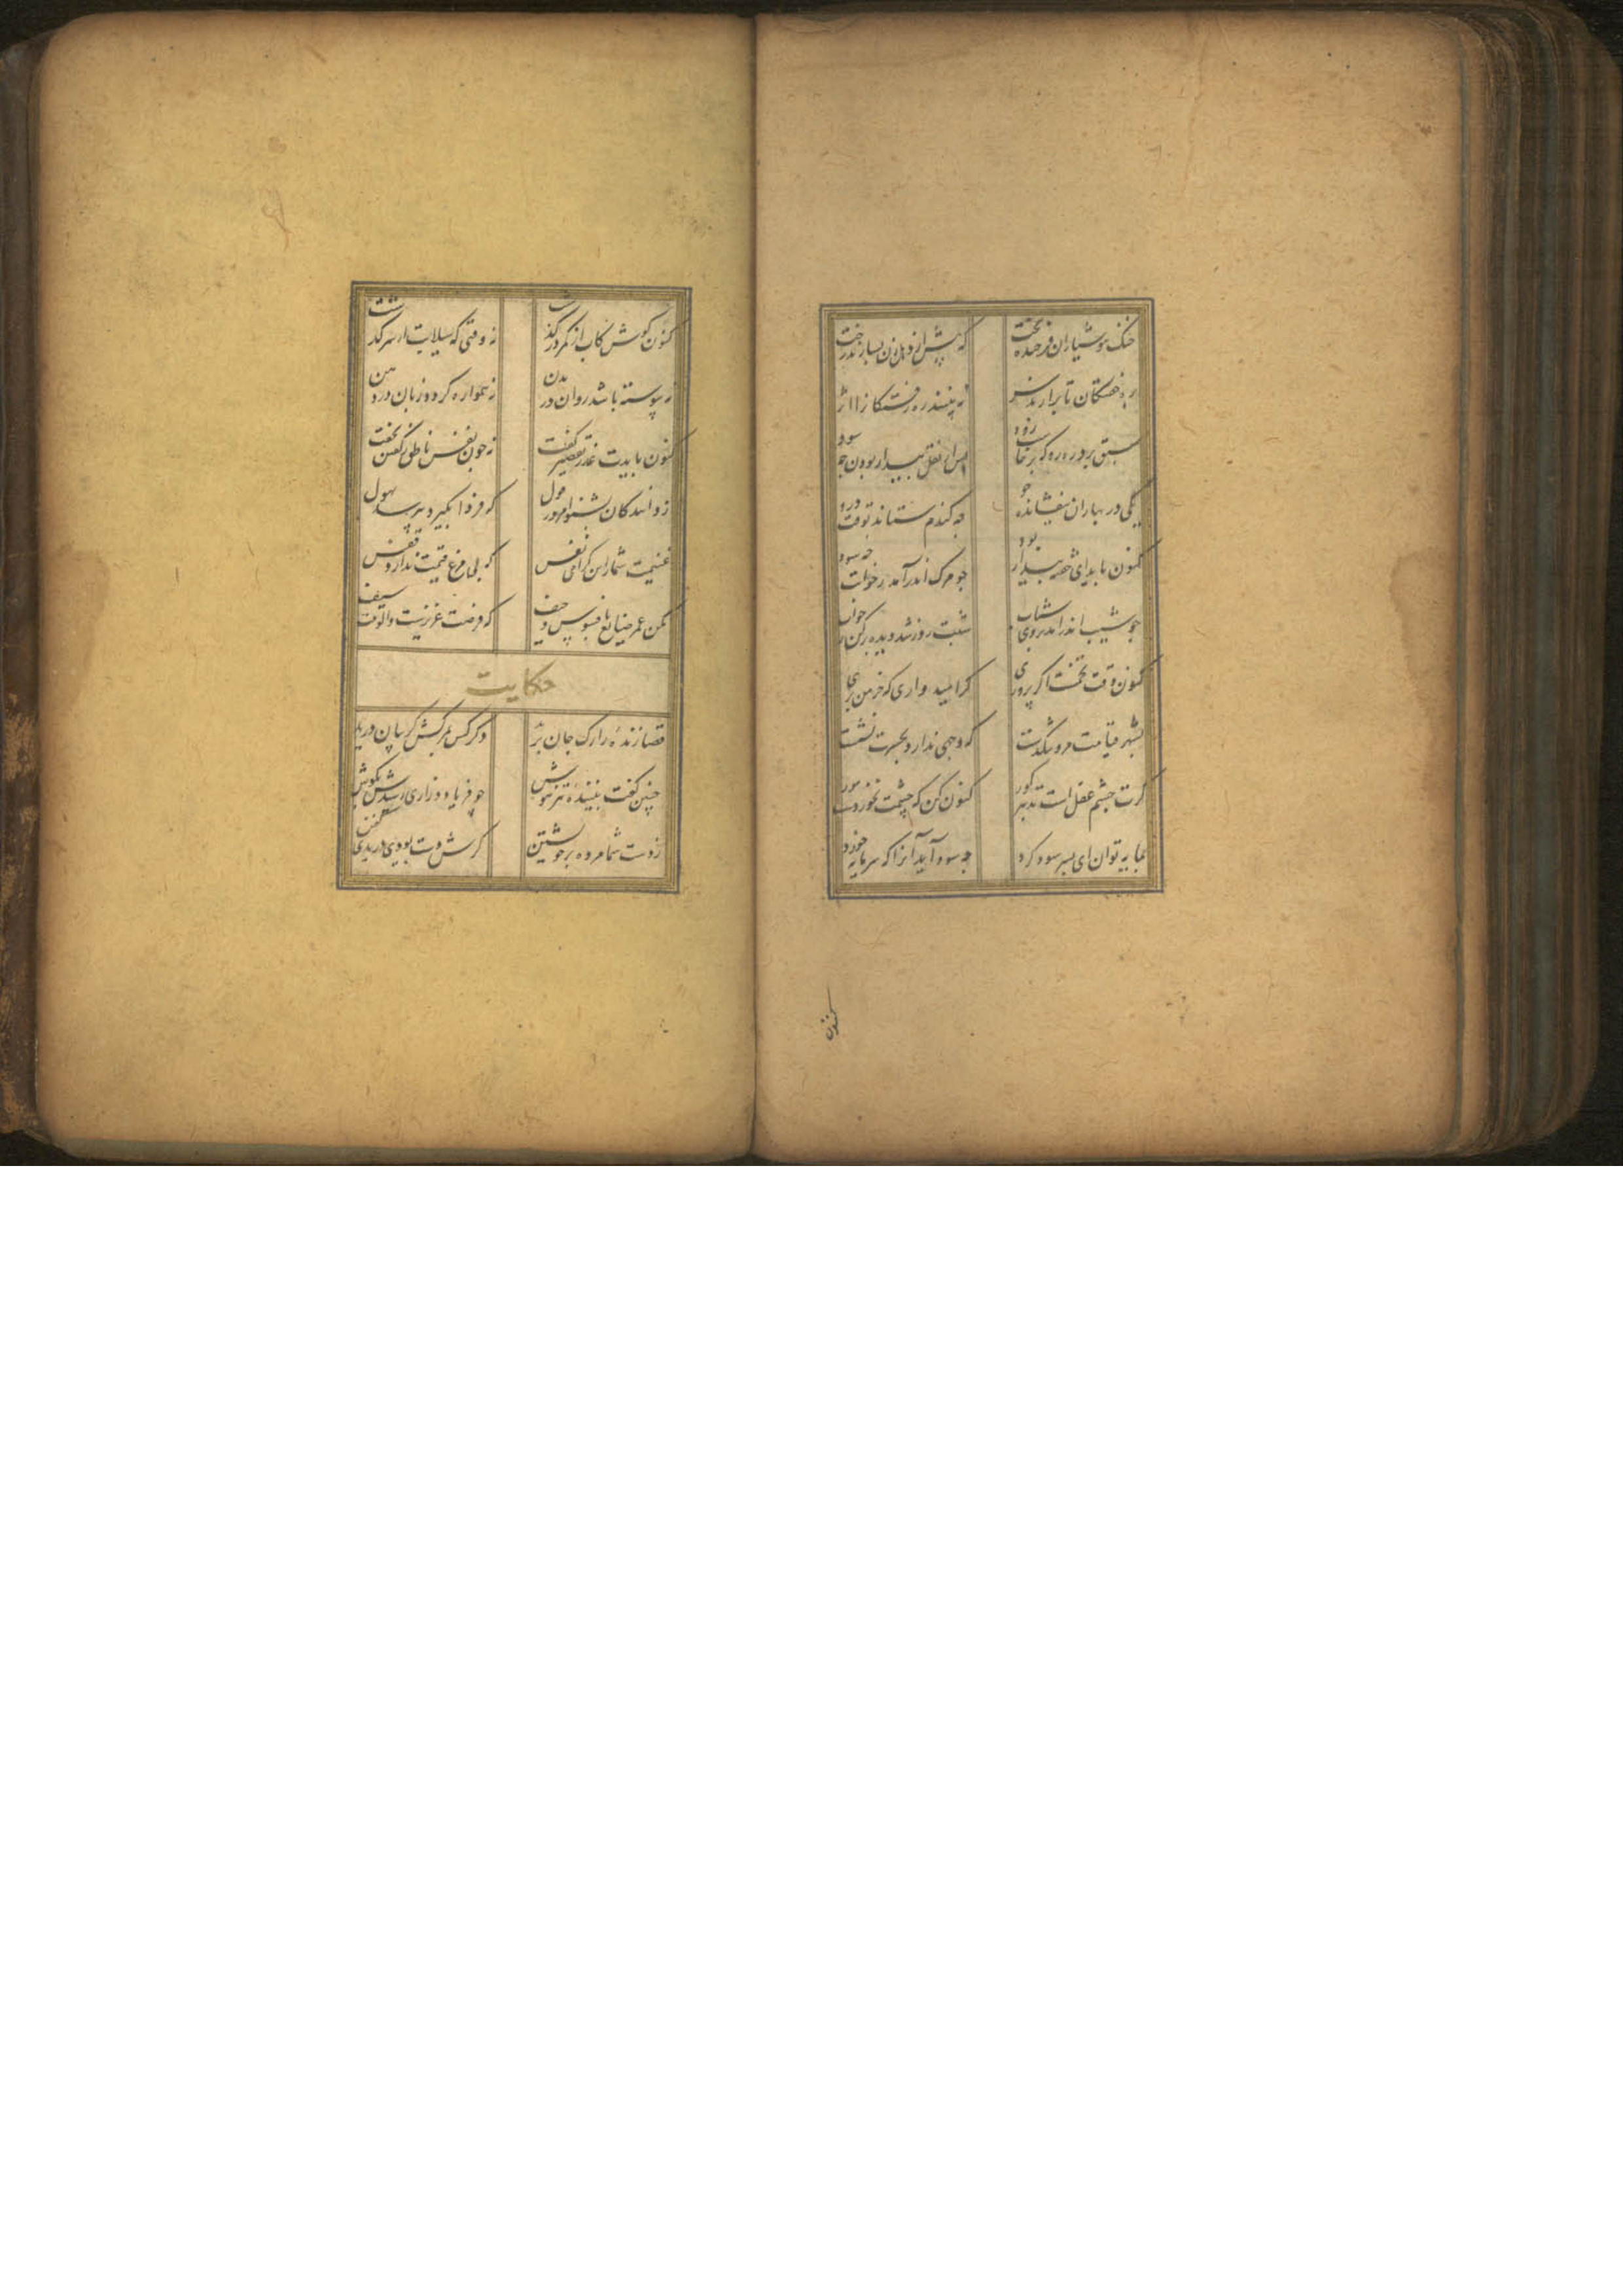 خنک هوشیاران فرخنده بخت که پیش از دهل زن بسازند رخت
به ره خفتگان تا برآرند سر نه بینند ره رفتگان را اثر
سبق برد رهرو که برخاست زود پس از نقل بیدار بودن چه سود
یکی در بهاران بیفشانده جو چه گندم ستاند بوقت درو
کنون باید ای خفته بیدار بود چو مرگ اندر آمد ز خوابت چه سود
چو شیب اندر آمد بروی شباب شبت روز شد دیده برکن ز خواب
کنون وقت تخمست اگر پروری گر امیدواری که خرمن بری
بشهر قیامت مرو تنگدست که وجهی ندارد بحسرت نشست
گرت چشم عقل است تدبیر گور کنون کن که چشمت نخوردست مور
بمایه توان ای پسر سود کرد چه سود آید آنرا که سرمایه خورد
کنون
کنون کوش کاب از کمر در گذشت نه وقتی که سیلابت از سر گذشت
نه پیوسته باشد روان در بدن نه همواره گردد زبان در دهن
کنون بایدت عذر تقصیر گفت نه چون نفس ناطق ز گفتن بخفت
ز دانندگان بشنو امروز قول که فردا نکیرد بپرسد بهول
غنیمت شمار این گرامی نفس که بی مرغ قیمت ندارد قفس
مکن عمر ضایع بافسوس و حیف که فرصت عزیزست والوقت سیف
حکایت
قضا زنده را رگ جان برید دگر کس بمرگش گریبان درید
چنین گفت بیننده تیزهوش چو فریاد و زاری رسیدش بگوش
ز دست شما مرده بر خویشتن گرش دست بودی دریدی کفن